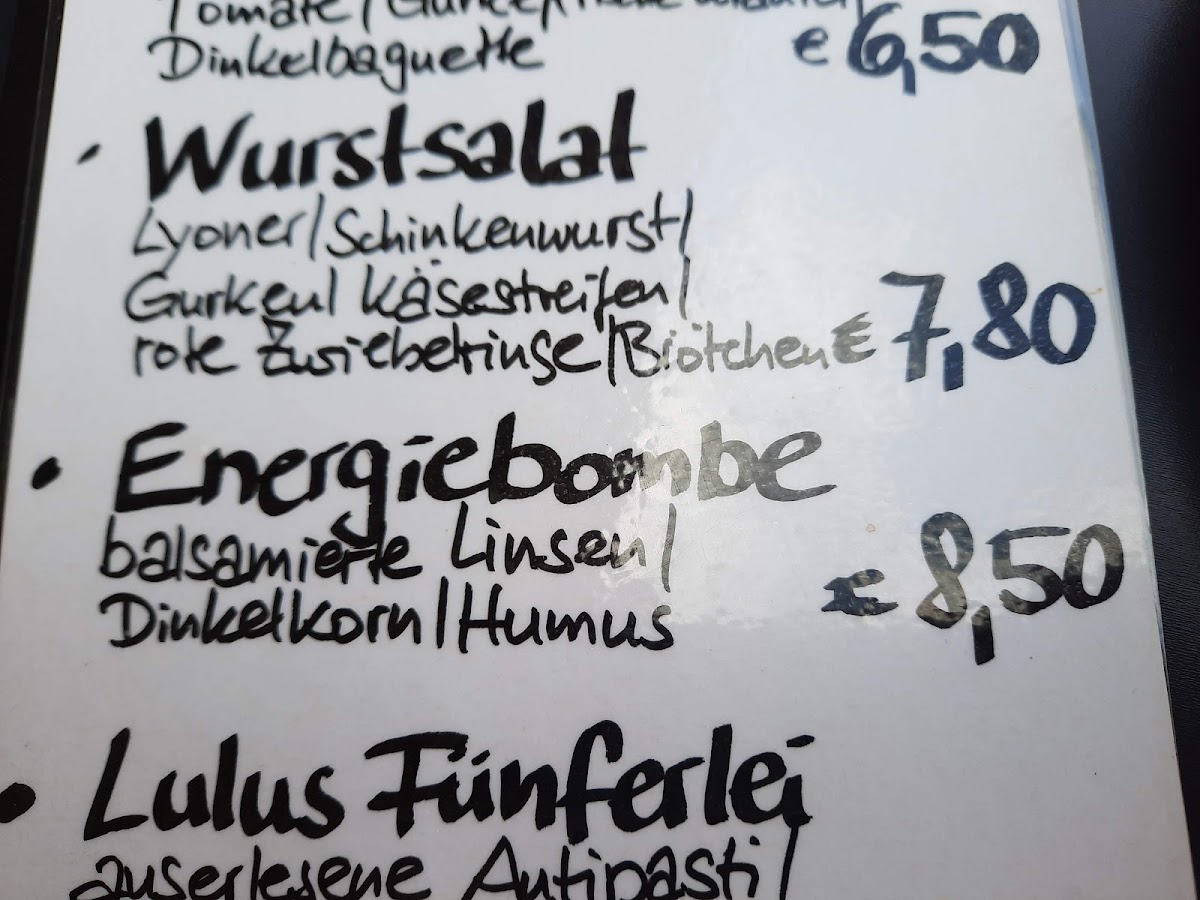 Tomate/Gurke/
Dinkelbaguette € 6,50
• Wurstsalat
Lyoner/Schinkenwurst/
Gurken/Käsestreifen/
rote Zwiebelringe/Brötchen € 7,80
• Energiebombe
balsamierte Linsen/
Dinkelkorn/Humus € 8,50
• Lulus Fünferlei
auserlesene Antipasti/